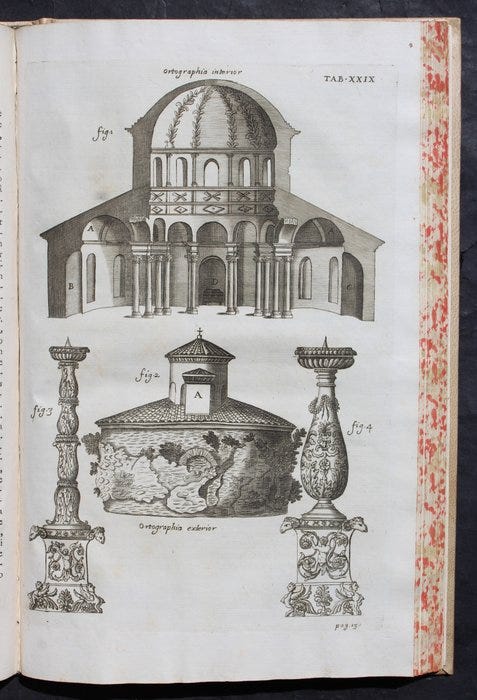 Ortographia interior
TAB·XXIX
fig1
A
B
D
C
fig·2
A
fig·3
fig·4
Ortographia exterior
pag·13·